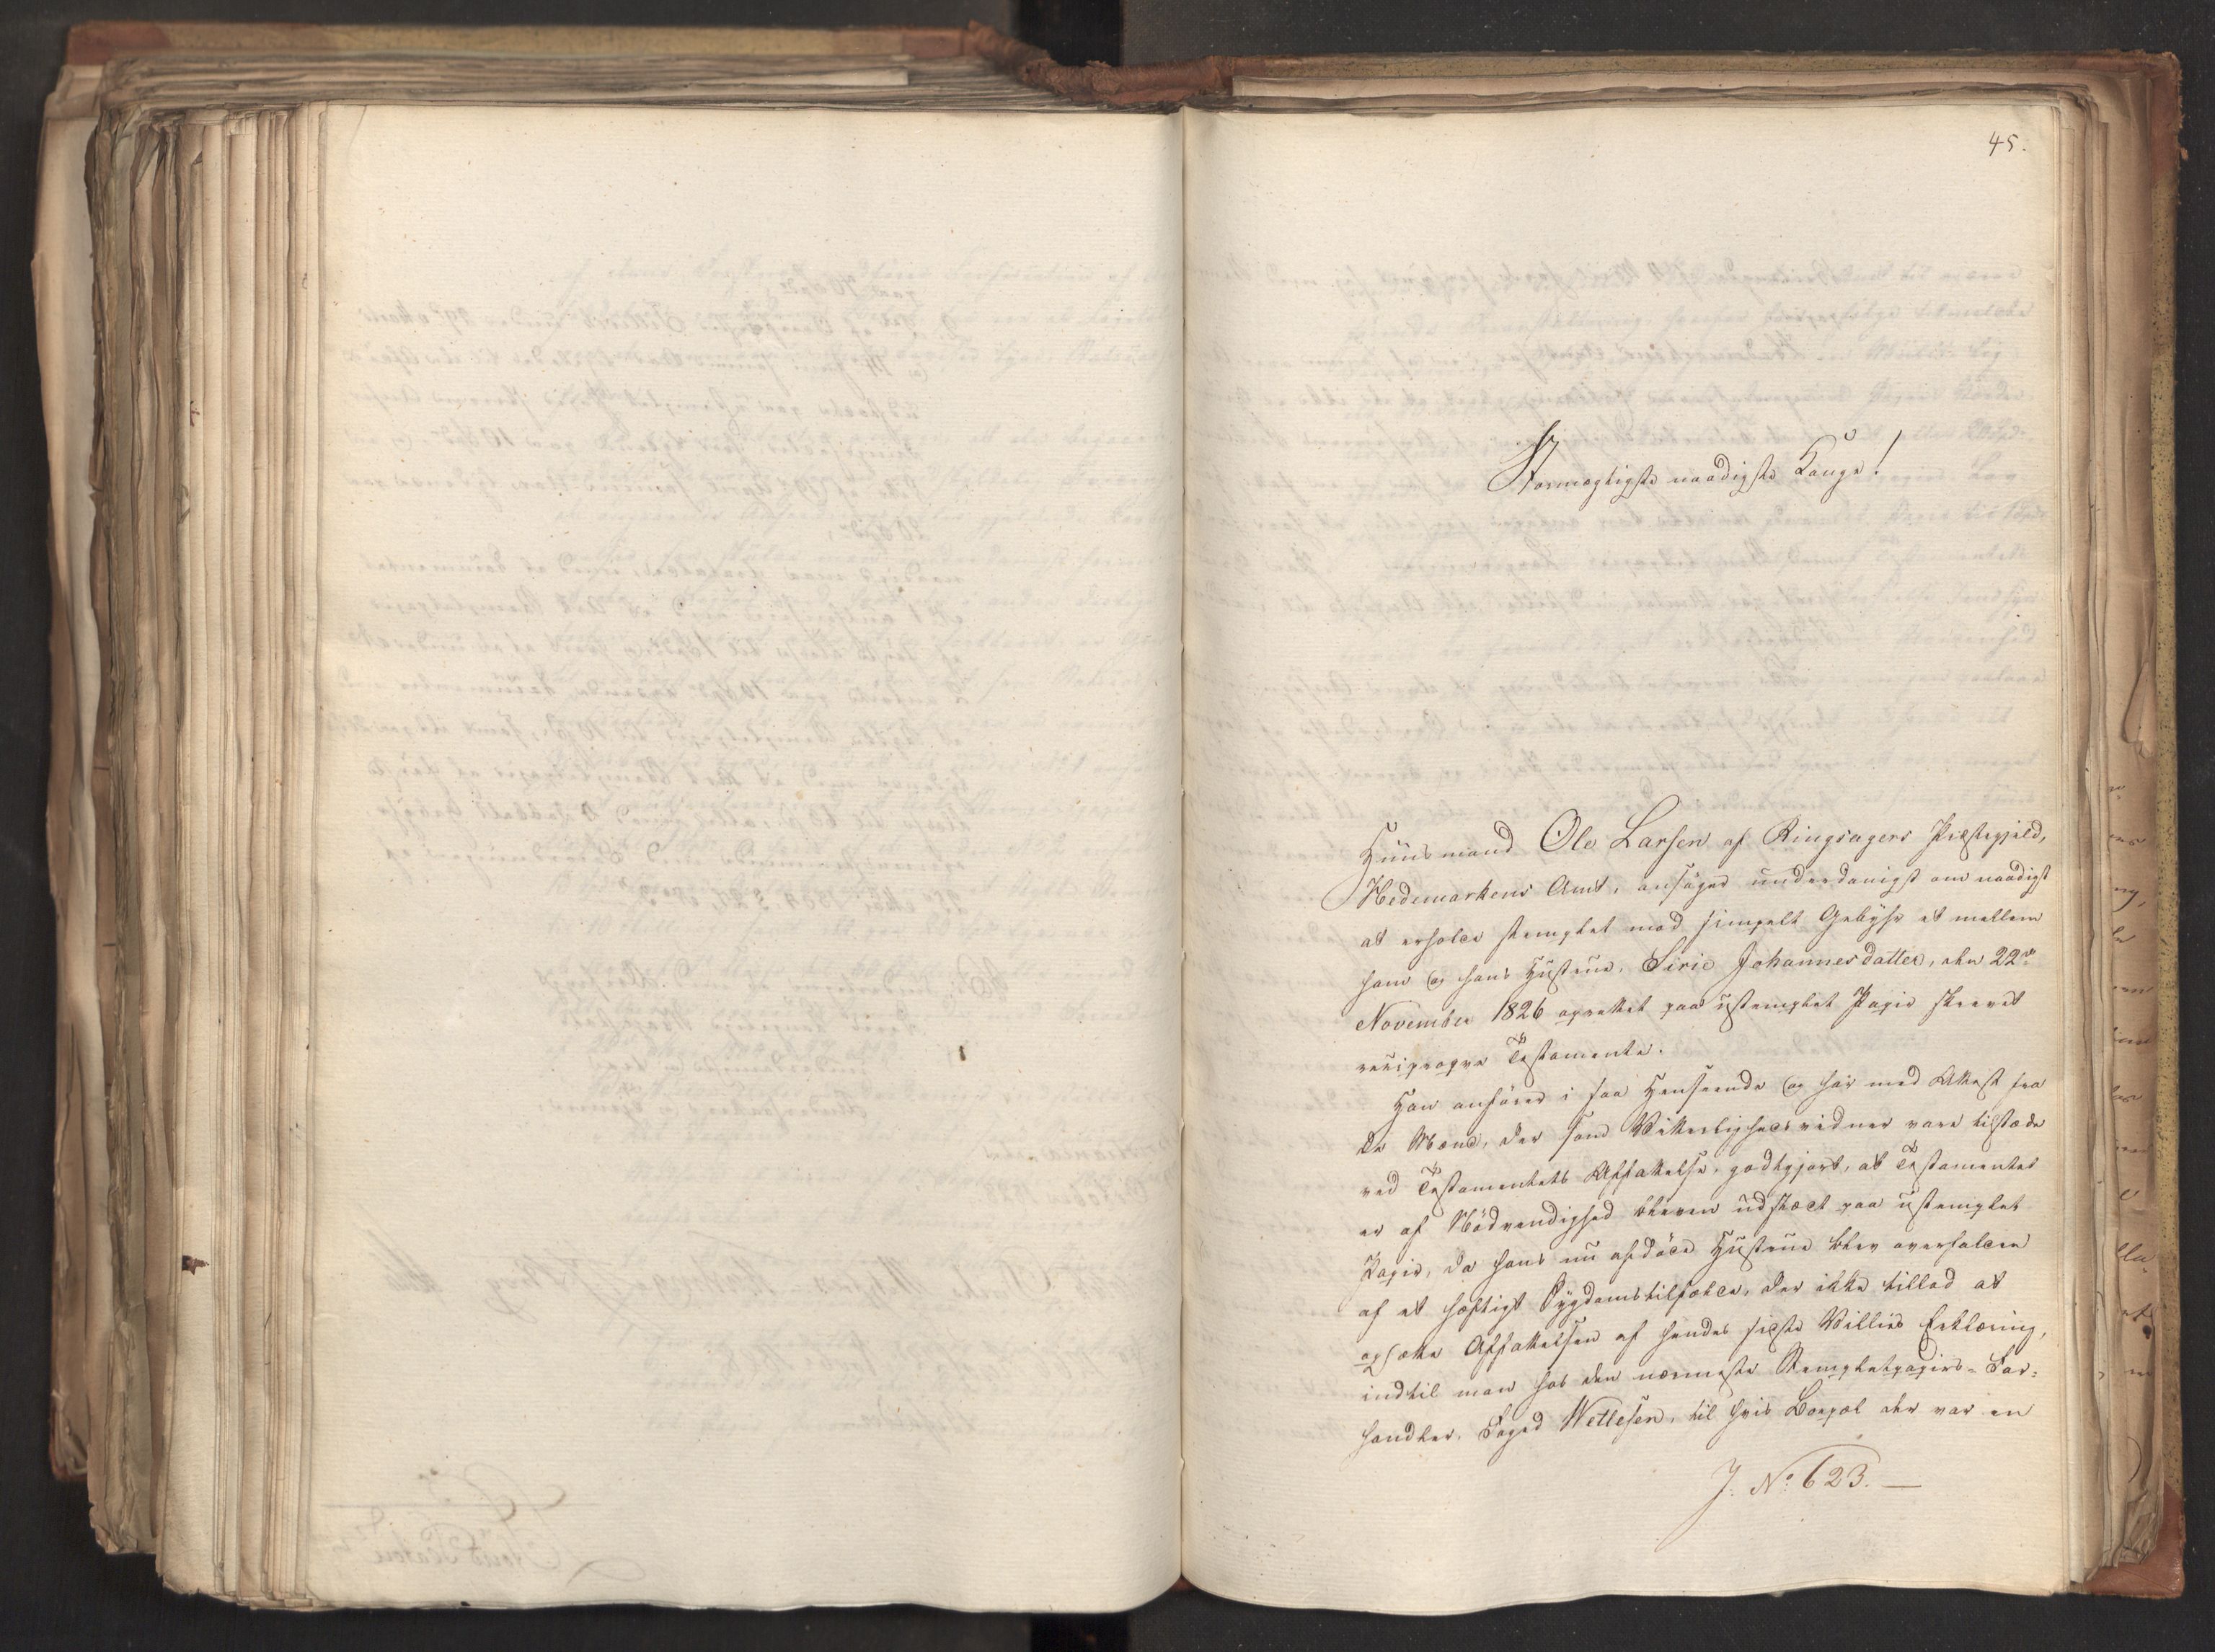 45.
Stormægtigste naadigste Konge!
Huusmand Ole Larsen af Ringsagers Præstegjeld,
Hedemarkens Amt, ansøger underdanigst om naadigst
at erholde stemplet med simpelt Gebyhr et mellem
ham og hans Hustrue, Sirie Johannesdatter, den 22de
November 1826 oprettet paa ustemplet Papir skrevet
reciproqve Testamente.
Han anfører i saa Henseende og har med Attest fra
de Mænd, der som Vitterlighedsvidner vare tilstæde
ved Testamentets Affattelse, godtgjort, at Testamentet
er af Nødvendighed bleven udstædt paa ustemplet
Papir, da hans nu afdøde Hustrue blev overfalden
af et hæftigt Sygdomstilfælde, der ikke tillod at
opsætte Affattelsen af hendes sidste Villies Erklæring,
indtil man hos den nærmeste Stempletpapirs-For-
handler, Foged Wetlesen, til hvis Bopæl der var en
J. No 623.